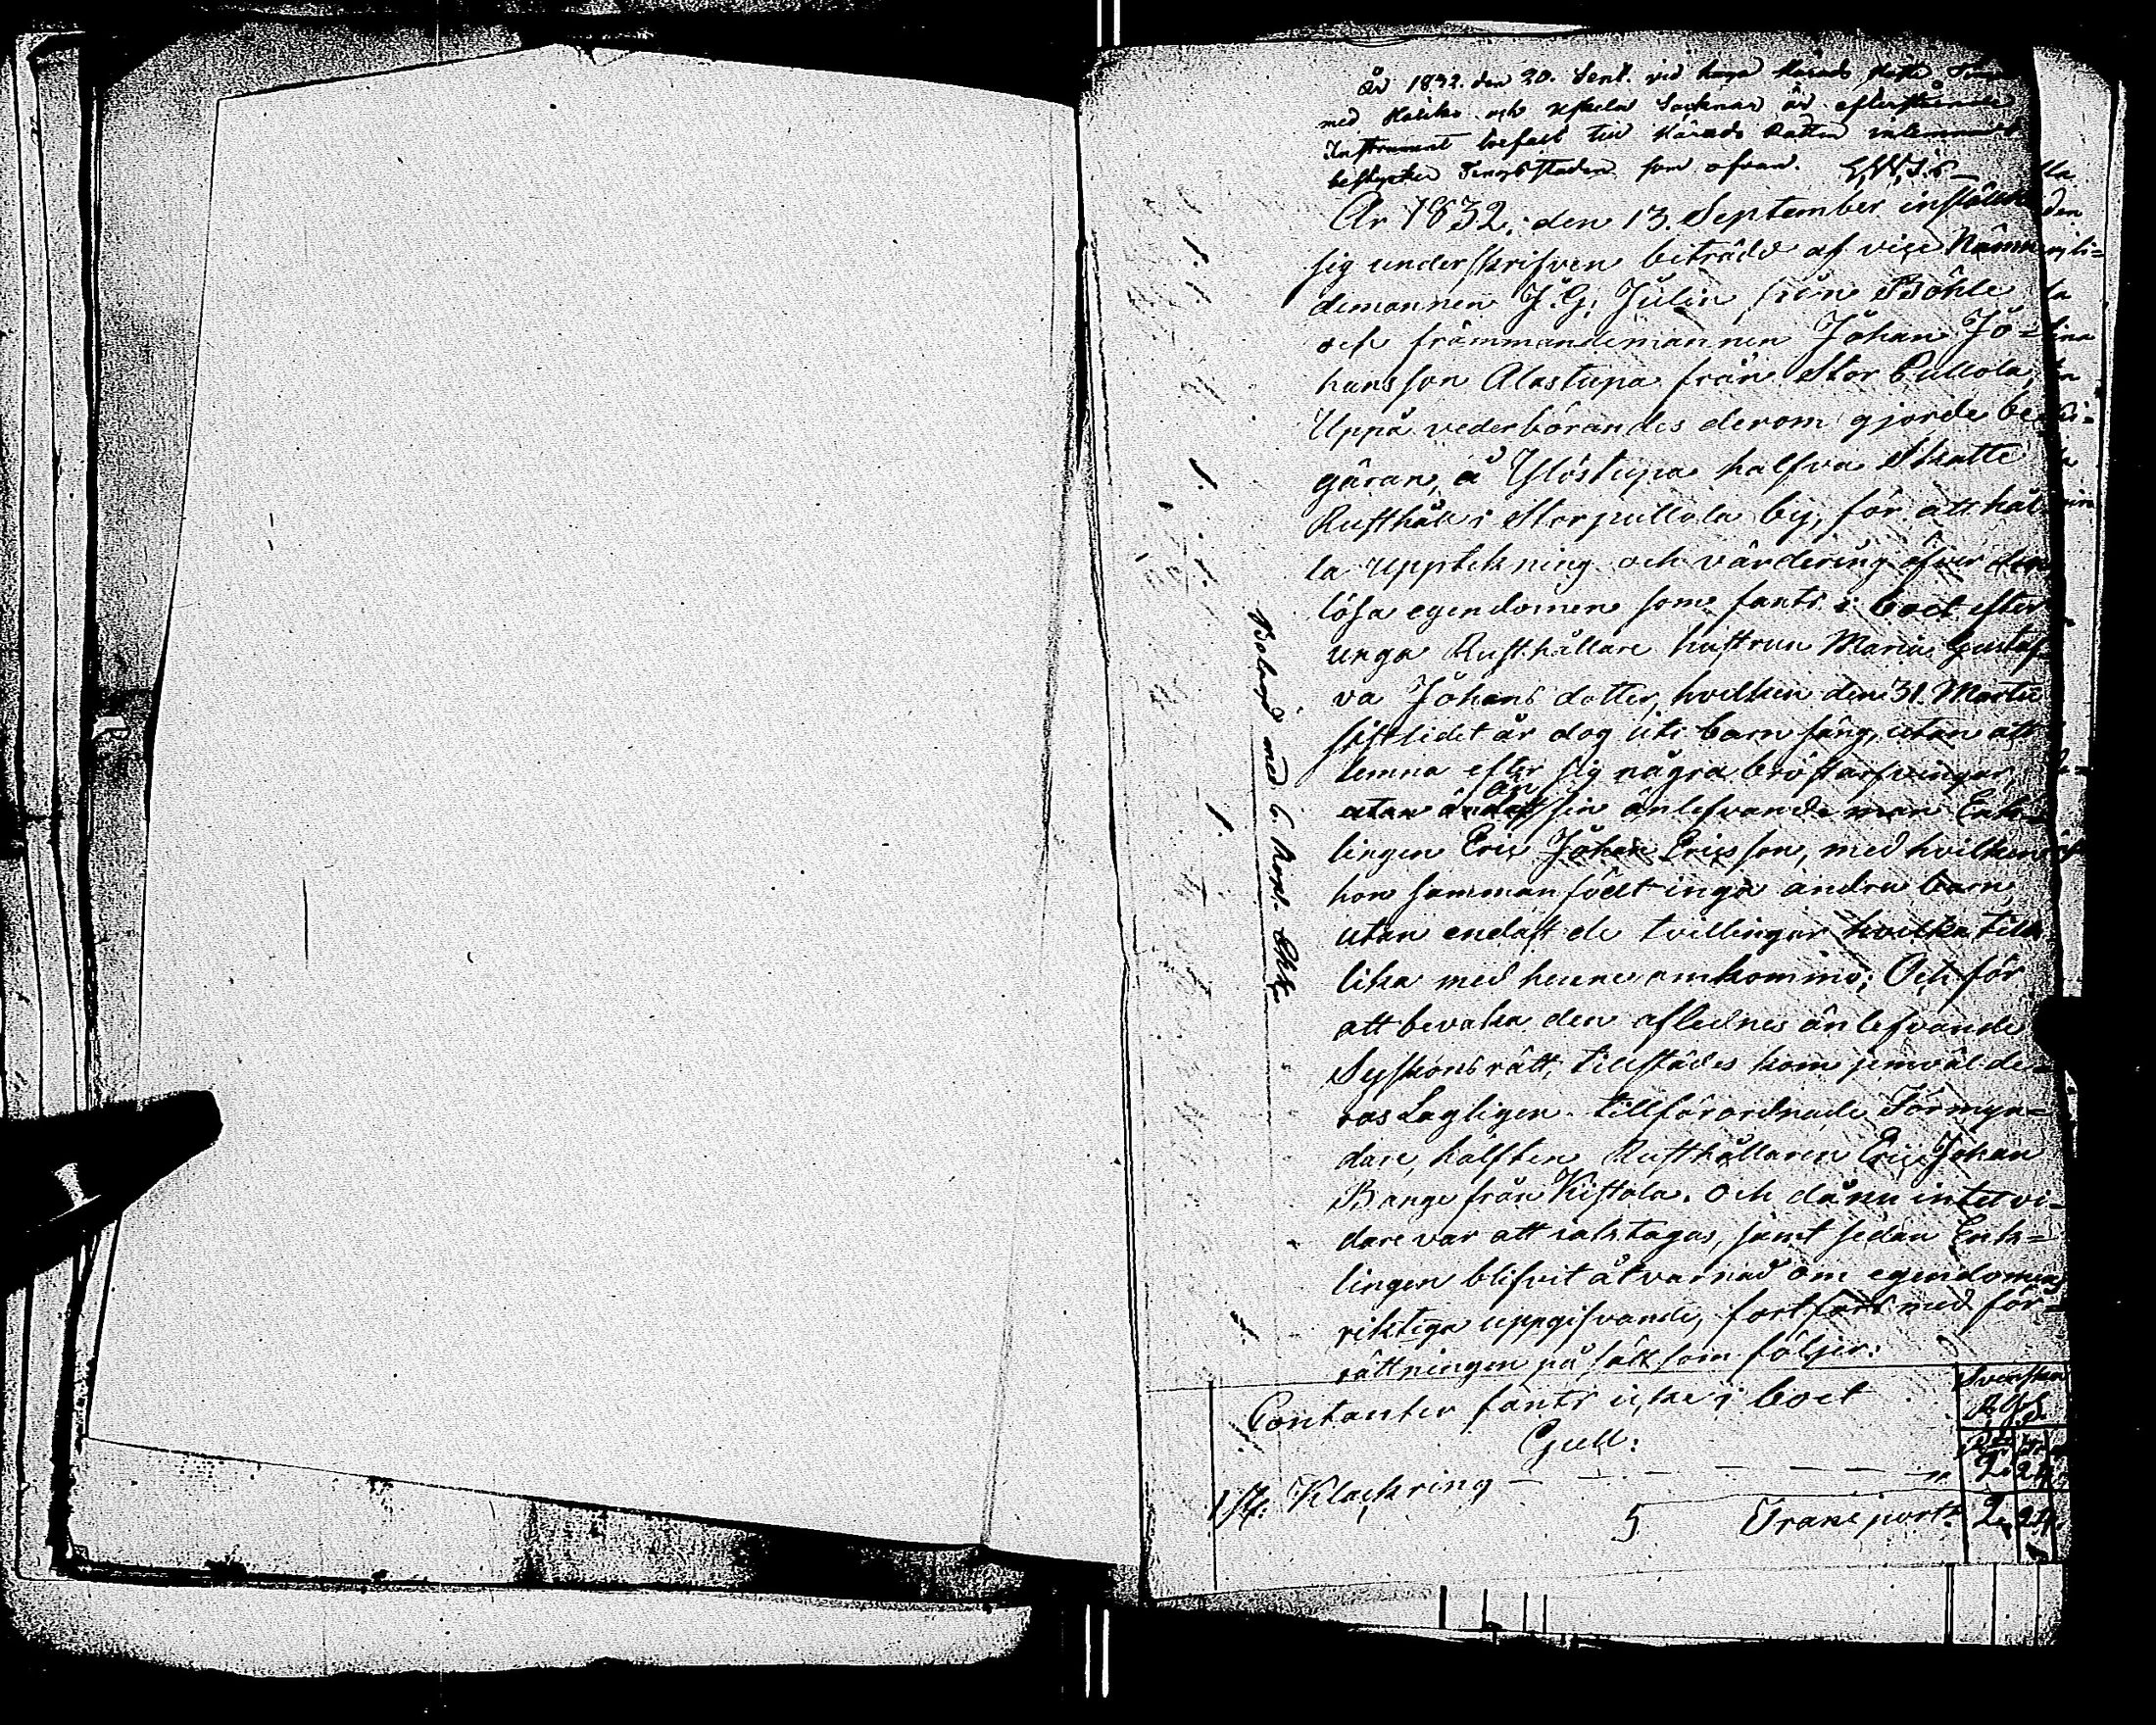 År 1832. den 20. Sept. vid laga Härads Höste Ting
med Haliko och Uskela Socknar är efterstående
Instrument befall till Härads Rätten inlemnadt
betyder Tingsstaden som ofvan.
År 1832, den 13. September instälde
sig underskrifven biträdd af vice Nämn
demannen J. G. Julin från Böhle
och främmandemannen Johan Jo-
hansson Alastupa från Stor Pullola,
Uppå vederbörandes derom gjorde be-
gäran, å Ylöstupa halfva Skatte
Rusthåll i Storpullola by, för att hål
la Upptekning och värdering öfver den
lösa egendomen som fants i boet efter
unga Rusthållare hustrun Maria Gustaf-
va Johans dotter, hvilken den 31. Martii
sistledit år dog uti barnsäng, utan att
lemna efter sig några bröstarfvingar,
utan sin änlefvande man Enk-
lingen Eric Johan Ericsson, med hvilken
hon samman födt inga andra barn,
utan endast de tvillingar hvilka till
lika med henne omkommo; Och för
att bevaka den aflednes änlefvande
Syskons rätt, tillstädes kom jemväl de-
ras Lagligen tillförordnade Förmyn-
dare, hälften Rusthållaren Eric Johan
Bange från Kistola. Och då nu intet vi-
dare var att iakttagas, samt sedan Enk-
lingen blifvit åtvarnad om egendomens
riktiga uppgifvande, fortfors med för-
rättningen på sätt som följer:
Svenska
R.G.S.
Contanter fants icke i boet
Gull:
1 St. Klackring 2. 24.
5 Transport: 2. 24.
Belagd med 6 Kop.